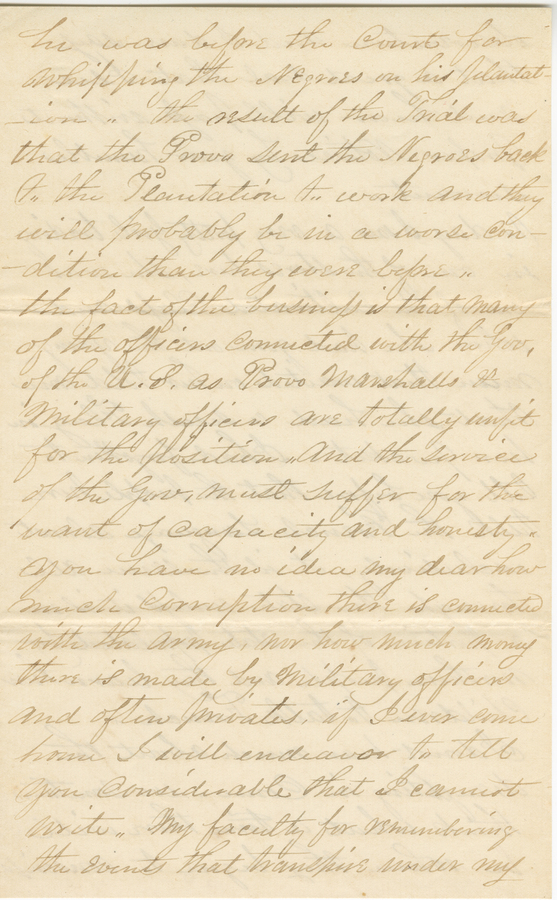 he was before the Court for
whipping the Negroes on his plantat-
-ion „ the result of the Trial was
that the Provo sent the Negroes back
to the Plantation to work and they
will probably be in a worse con-
-dition than they were before „
the fact of the business is that many
of the officers connected with the Gov,
of the U.S. as Provo Marshalls &
Military officers are totally unfit
for the position „ And the service
of the Gov, must suffer for the
want of capacity and honesty „
you have no idea my dear how
much corruption there is connected
with the army, nor how much money
there is made by Military officers
and often Privates, if I ever come
home I will endeavor to tell
you considerable that I cannot
write „ My faculty for remembering
the events that transpire under my